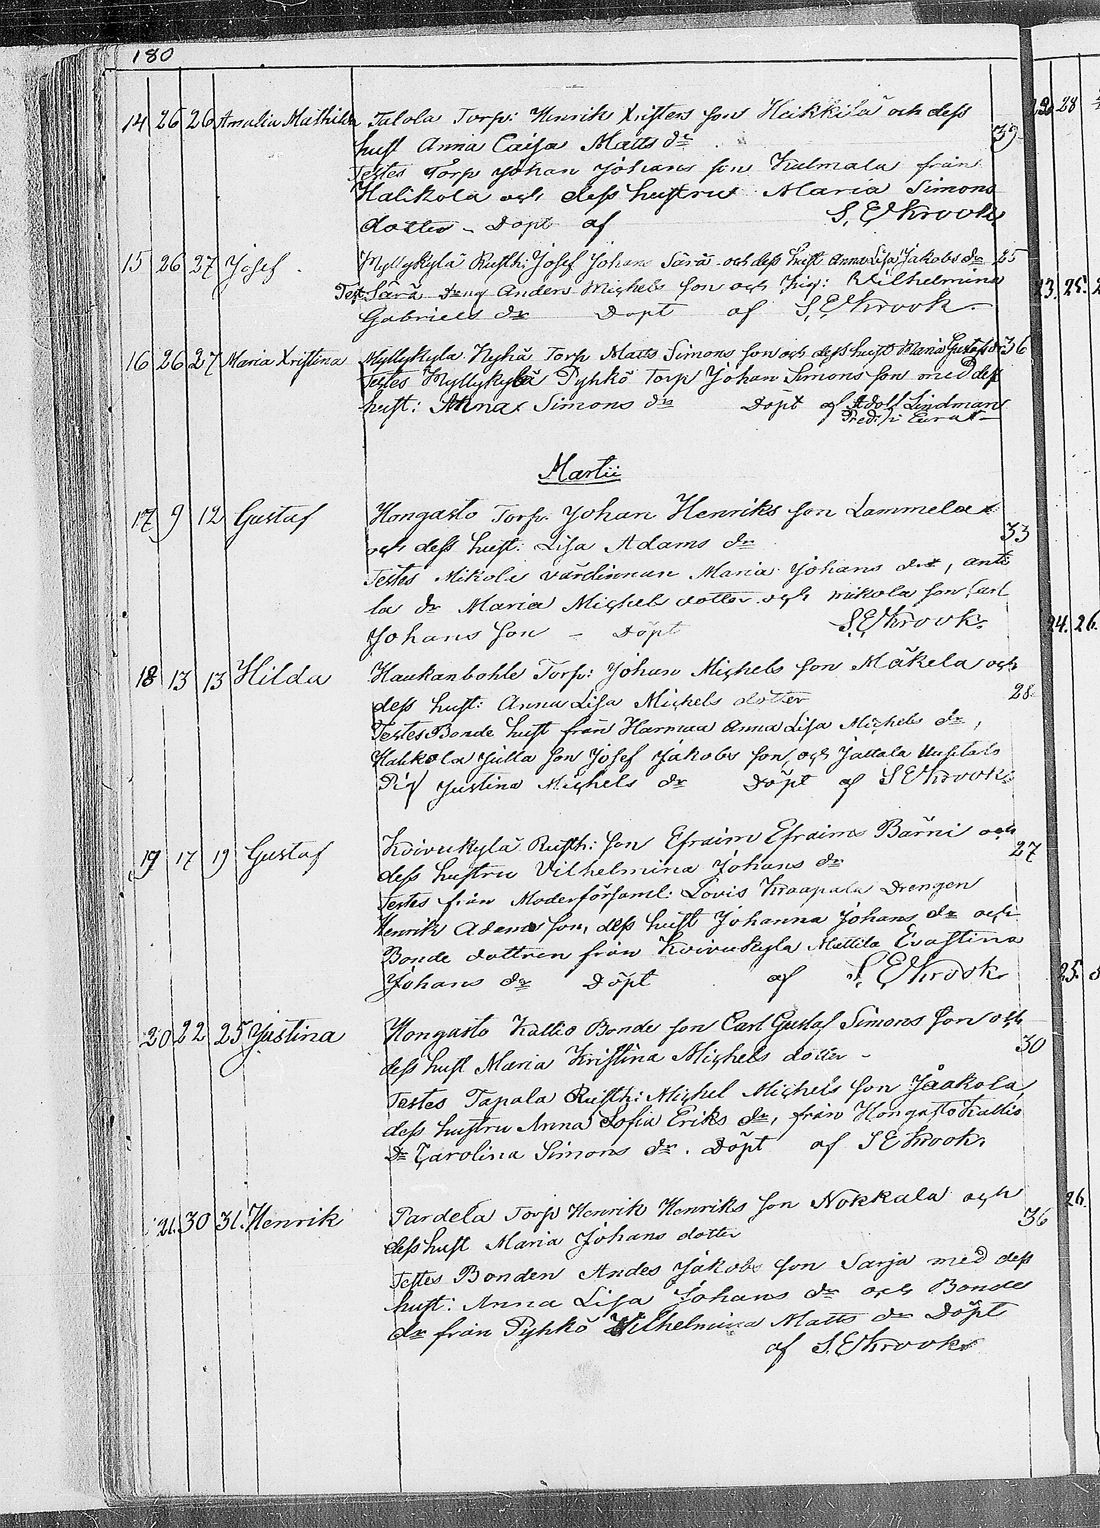 180
14 26 26 Amalia Mathilda Talola Torp: Henrik Kristers son Heikkilä och dess
hust Anna Caisa Matts dr 39
Testes Torp Johan Johans son Kulmala från
Halikola och dess hustru Maria Simons
dotter - Döpt af S. E. Krook
15 26 27 Josef Myllykylä Rusth: Josef Johans Särä och dess hust Anna Lisa Jakobs dr 25
Test Särä Dreng Anders Michels son och Pig: Wilhelmina
Gabriels dr Döpt af S. E. Krook
16 26 27 Maria Kristina Myllykylä Torp Matts Simons son och dess hust Maria Gustafs dr 36
Testes Myllykylä Pyhkö Torp Johan Simons son med dess
hust: Anna Simons dr Döpt af Adolf Lindman
Pred: i Eura
Martii
17 9 12 Gustaf Hongasto Torp. Johan Henriks son Lammela
och dess hust: Lisa Adams dr 33
Testes Mikola värdinnan Maria Johans dr, anti
la dr Maria Michels dotter och mikola son Carl
Johans son - Döpt S. E. Krook
18 13 13 Hilda Haukanbohle Torp: Johan Michels son Mäkela och
dess hust: Anna Lisa Michels dotter 28
Testes Bonde hust från Harmaa Anna Lisa Michels dr,
Halikola Julla son Josef Jakobs son, och Jallala
Pig Justina Michels dr Döpt af S E Krook
19 17 19 Gustaf Koivukylä Rusth: son Efraim Efraims Bärni och
dess hustru Vilhelmina Johans dr 27
Testes från Moderförsaml: Lovis Knaapala Drengen
Henrik Adams son, dess hust Johanna Johans dr och
Bonde dottren från Koivukyla Mattila Evastina
Johans dr Döpt af S. E. Krook
20 22 25 Justina Hongasto Kallio Bonde son Carl Gustaf Simons son och
dess hust Maria Kristina Michels dotter - 30
Testes Tapala Rusth: Michel Michels son Jaakola,
dess hustru Anna Sofia Eriks dr, från Hongasto Kallio
Dr Carolina Simons dr. Döpt af S E Krook
21. 30 31. Henrik Pardela Torp Henrik Henriks son Nokkala och
dess hust Maria Johans dotter 36
Testes Bonden Andes Jakobs son Sarja med dess
hust: Anna Lisa Johans dr och Bonde
dr från Pyhkö Wilhelmina Matts dr Döpt
af S. E. Krook
28
23. 25.
24. 26.
25.
26.